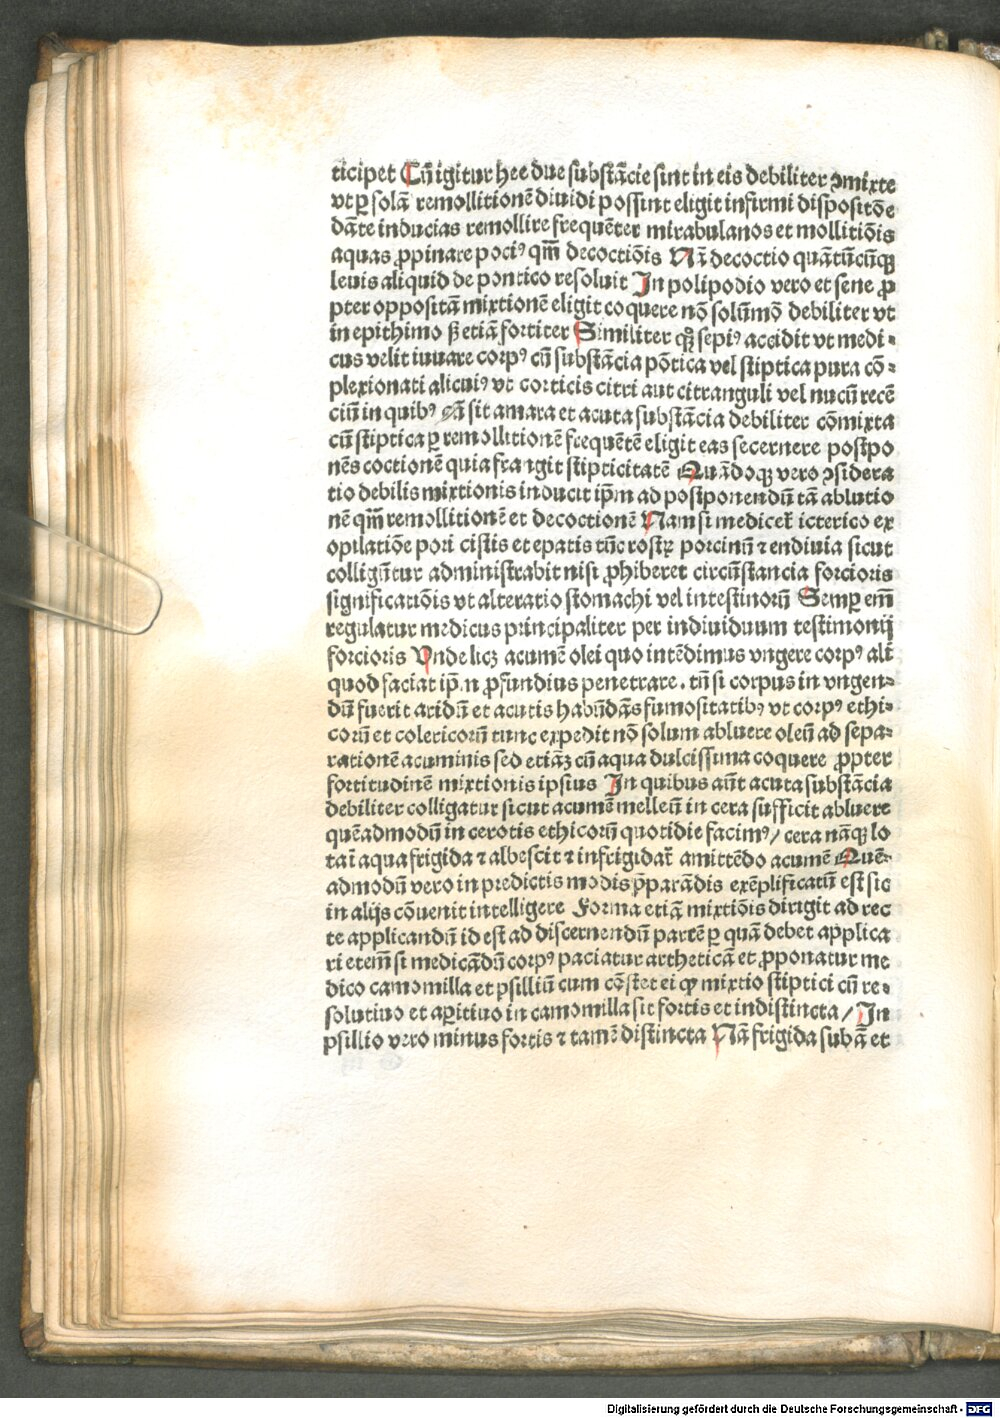 ticipet Cū igitur hee due substācie sint in eis debiliter ɔmixte
vt ꝑ solā remollitionē diuidi possint eligit infirmi dispositōe
dāte inducias remollire frequēter mirabulanos et mollitiōis
aquas ꝓpinare pociꝰ qm̄ decoctiōis Nā decoctio quātūcūqꝫ
leuis aliquid de pontico resoluit In polipodio vero et sene ꝓ
pter oppositā mixtionē eligit coquere nō solūmō debiliter vt
in epithimo ß etiā fortiter Similiter qꝛ sepiꝰ accidit vt medi⸗
cus velit iuuare corpꝰ cū substācia pōtica vel stiptica pura cō⸗
plexionati alicuiꝰ vt corticis citri aut citranguli vel nucū recē
ciū in quibꝰ sit amara et acuta substācia debiliter cōmixta
cū stiptica ꝑ remollitionē frequētē eligit eas secernere postpo
nēs coctionē quia frangit stipticitatē Quādoqꝫ vero ɔsidera
tio debilis mixtionis inducit ip̄m ad postponendū tā ablutio
nē qm̄ remollitionē et decoctionē Nam si medicet̄ icterico ex
opilatiōe pori cistis et epatis tūc rostꝝ porcinū ⁊ endiuia sicut
colligūtur administrabit nisi ꝓhiberet circūstancia forcioris
significatiōis vt alteratio stomachi vel intestinorū Semꝑ em̄
regulatur medicus principaliter per indiuiduum testimonij
forcioris Vnde licꝫ acumē olei quo intēdimus vngere corpꝰ alt̄
quod faciat ip̄m ꝓfundius penetrare . tn̄ si corpus in vngen⸗
dū fuerit aridū et acutis habūdās fumositatibꝰ vt corpꝰ ethi⸗
corū et colericorū tunc expedit nō solum abluere oleū ad sepa⸗
rationē acuminis sed etiāꝫ cū aqua dulcissima coquere ꝓpter
fortitudinē mixtionis ipsius In quibus aūt acuta substācia
debiliter colligatur sicut acumē melleū in cera sufficit abluere
quēadmodū in cerotis ethicorū quotidie facimꝰ / cera nāqꝫ lo
ta ī aqua frigida ⁊ albescit ⁊ infrigidat̄ amittēdo acumē Quē⸗
admodū vero in predictis modis p̄parādis exēplificatū est sic
in alijs cōuenit intelligere Forma etiā mixtiōis dirigit ad rec
te applicandū id est ad discernendū partē ꝑ quā debet applica
ri etem̄ si medicādū corpꝰ paciatur artheticā et ꝓponatur me
dico camomilla et psilliū cum cōstet ei ꝙ mixtio stiptici cū re⸗
solutiuo et aꝑitiuo in camomilla sit fortis et indistincta / In
psillio vero minus fortis ⁊ tamē distincta Nā frigida subā et
Digitalisierung gefördert durch die Deutsche Forschungsgemeinschaft - DFG